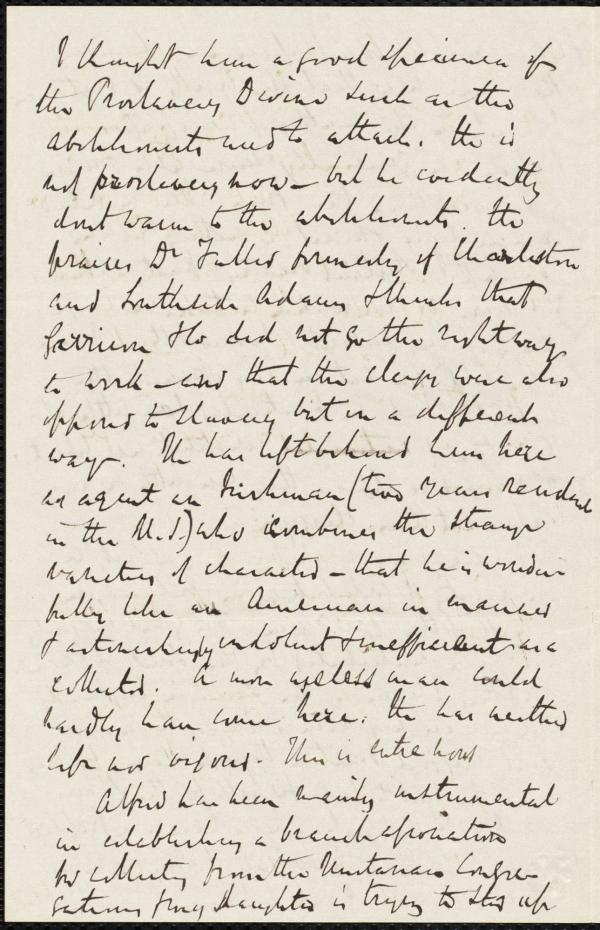 I thought him a good specimen of
the Proslavery Divine such as the
abolitionists used to attack. He is
not proslavery now – but he evidently
dont warm to the abolitionists. He
praises Dr Fuller formerly of Charleston
and Southside Adams & thinks that
Garrison &c did not go the right way
to work – and that the clergy were also
opposed to Slavery but in a different
way. He has left behind him here
as agent an Irishman (two years resident
in the U.S.) who combines the strange
varieties of character – that he is wonder-
fully like an American in manner
& astonishingly indolent & inefficient as a
collector. A more useless man could
hardly have come here. He has neither
life nor vigour. This is entre nous
Alfred has been mainly instrumental
in establishing a branch association
for collecting from the Unitarian Congre-
gations & my daughter is trying to stir up